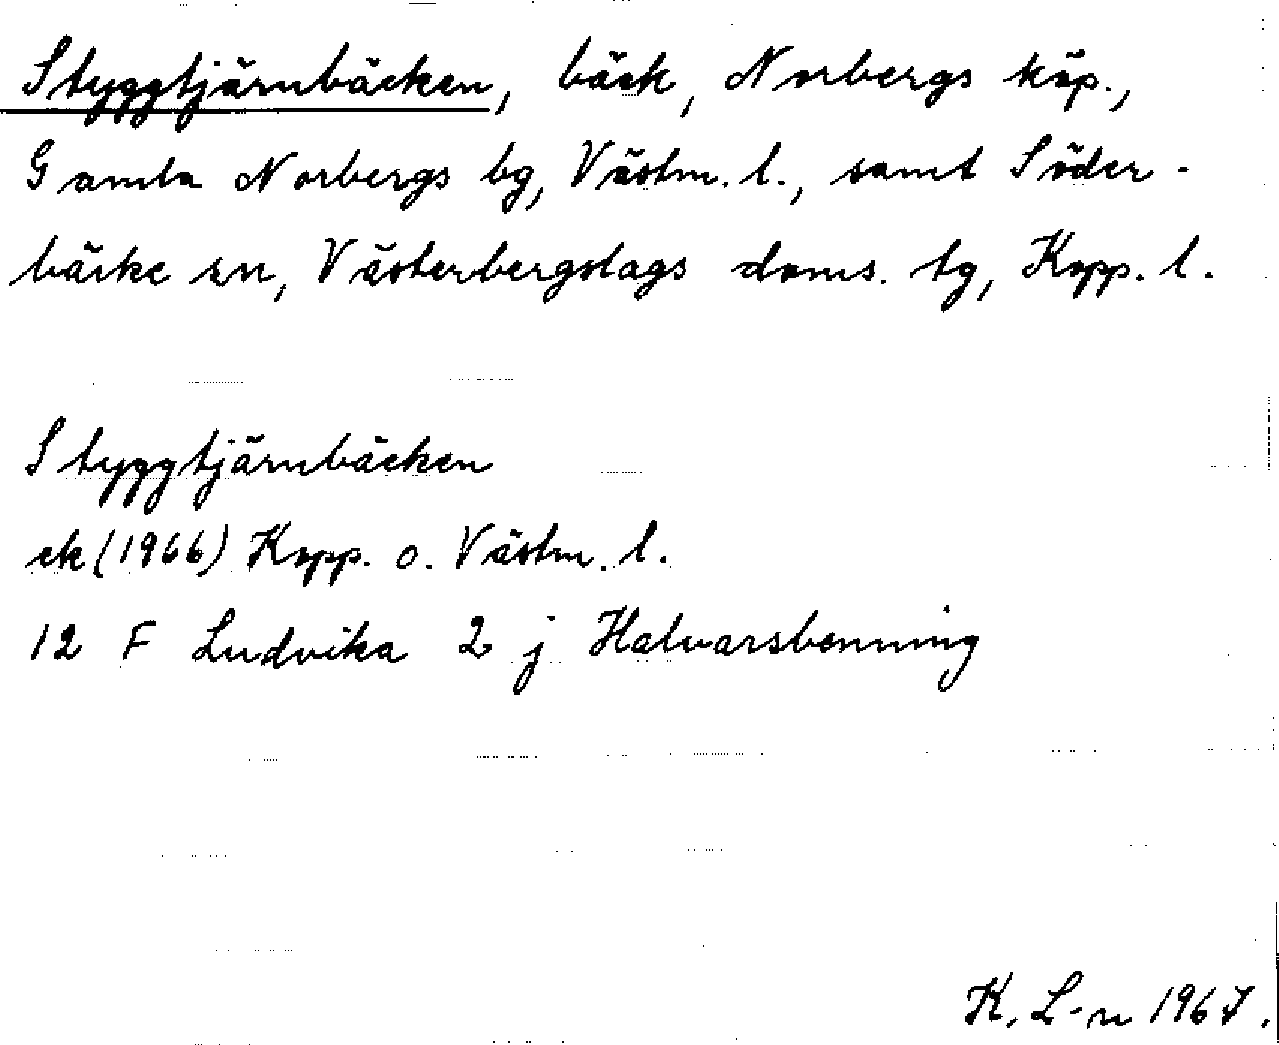 Styggtjärnbäcken, bäck, Norbergs köp.,
Gamla Norbergs bg, Västm. l., samt Söder-
bärke sn, Västerbergslags doms. tg, Kopp. l.
Styggtjärnbäcken
ek (1966) Kopp. o. Västm. l.
12 F Ludvika 2 j Halvarsbenning
K. L-n 1967.